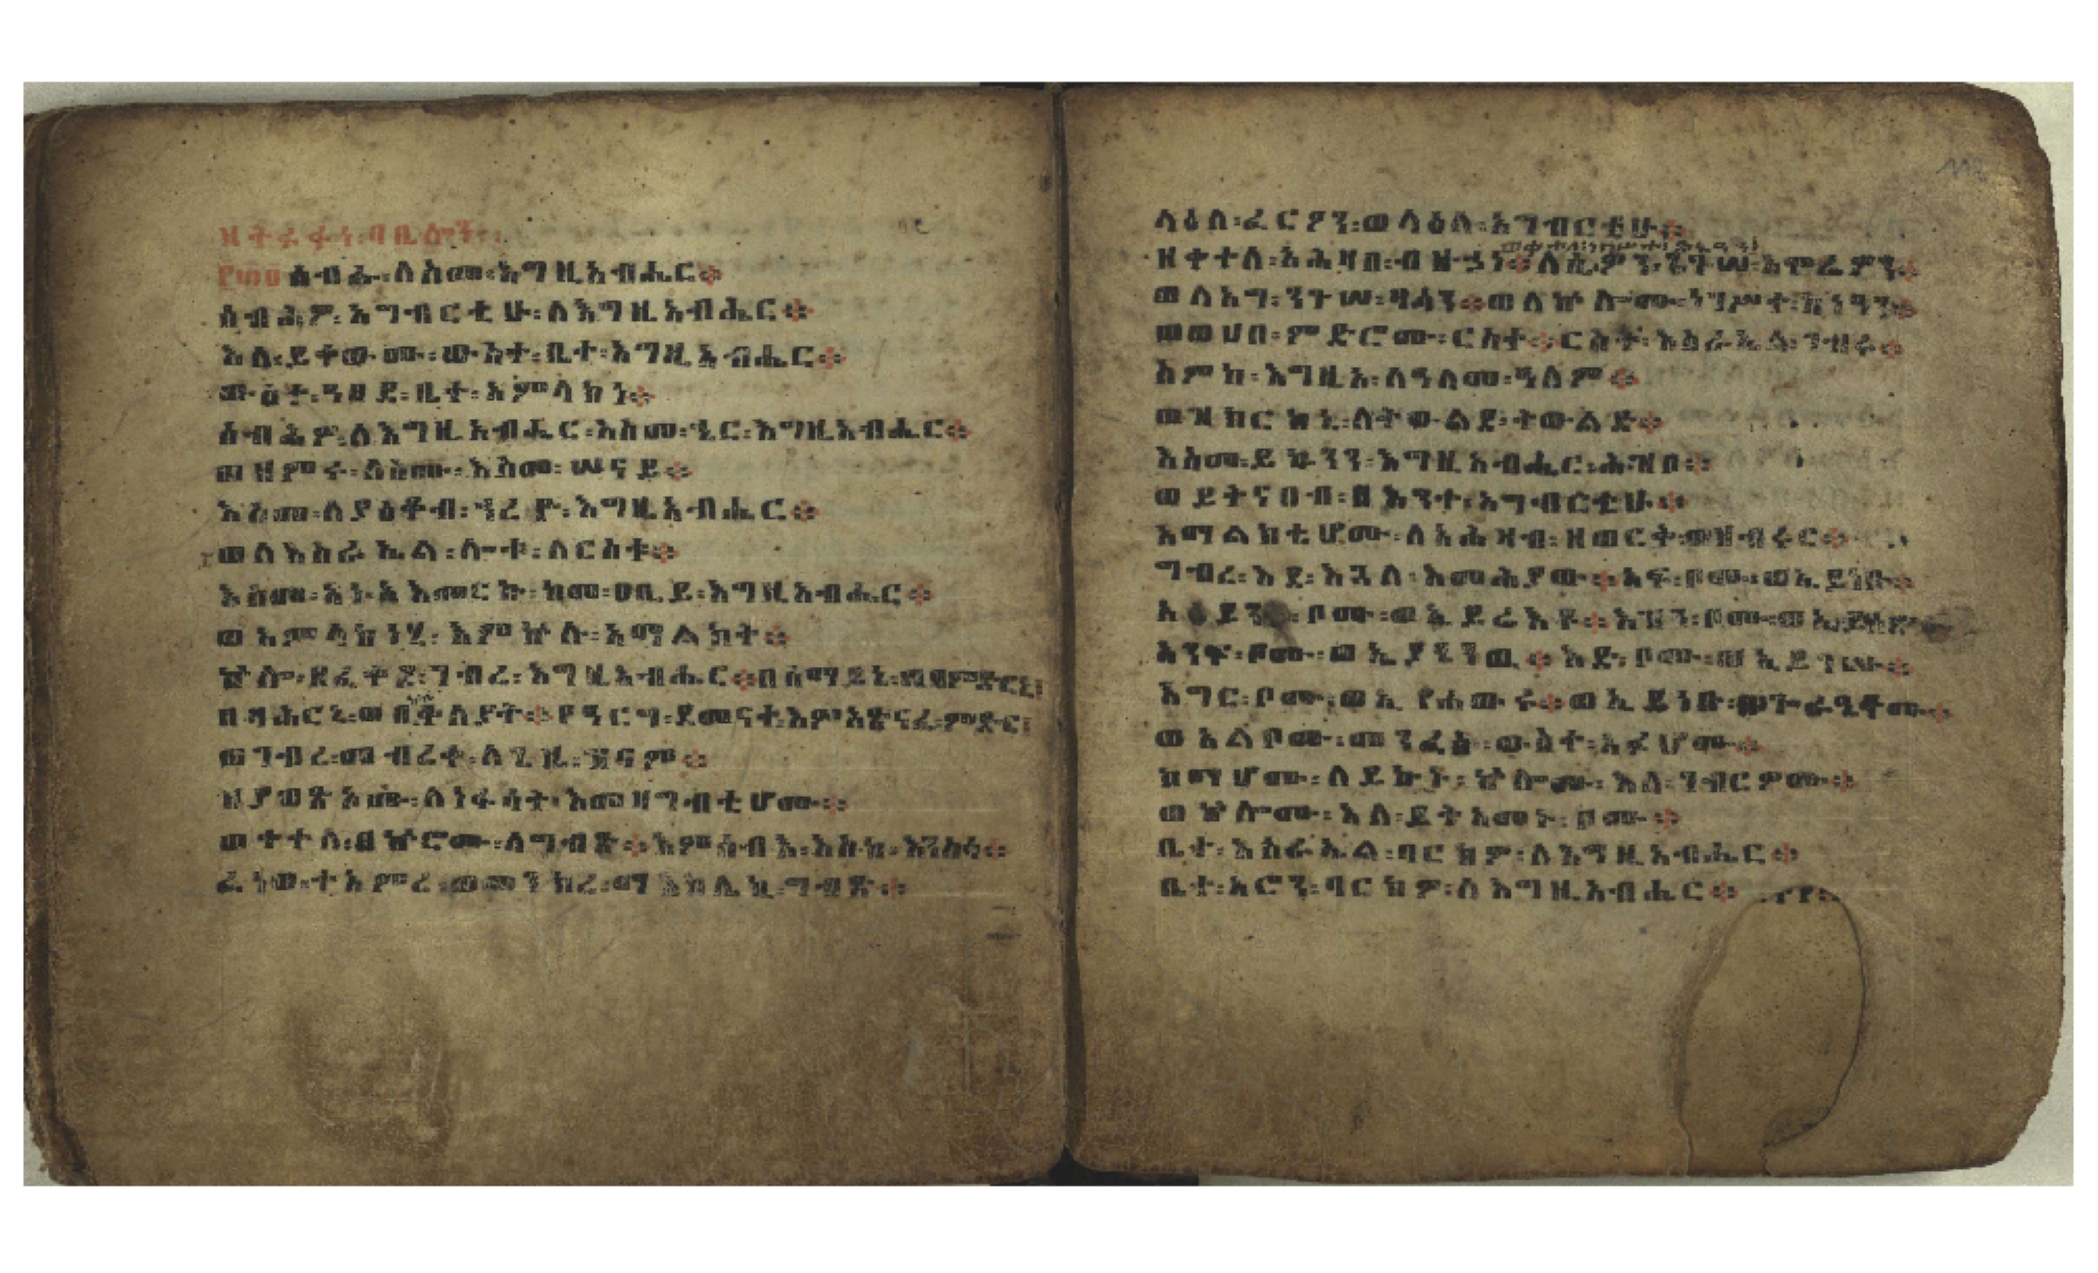 ሰብሑ፡ለስመ፡እግዚአብሔር፨
ሰብሕዎ፡አግብርቲሁ፡ለእግዚአብሔር፨
እለ፡ይቀውሙ፡ውስተ፡ቤተ፡እግዚአብሔር፨
ውስተ፡ዓጸደ፡ቤተ፡አምላክነ፨
ሰብሕዎ፡ለእግዚአብሔር፡እስመ፡ኄር፡እግዚአብሔር፨
ወዘምሩ፡ለስሙ፡እስመ፡ሠናይ፨
እስመ፡ለያዕቆብ፡ኀረዮ፡እግዚአብሔር፨
ወለእስራኤል፡ሎቱ፡ለርስቱ፨
እስመ፡አነ፡አእመርኩ፡ከመ፡ዐቢይ፡እግዚአብሔር፨
ወአምላክነሂ፡እምኵሉ፡አማልክት፨
ኵሎ፡ዘፈቀደ፡ገብረ፡እግዚአብሔር፨በሰማይኒ፡ወበምድርኒ፡
በባሕርኒ፡ወበቀላያት፨የዓርግ፡ደመናተ፡እምአጽናፈ፡ምድር፡
ወገብረ፡መብረቀ፡ለጊዜ፡ዝናም፨
ዘያወጽኦሙ፡ለነፋሳት፡እመዛግብቲሆሙ፨
ወቀተለ፡በኵሮሙ፡ለግብጽ፨እምሰብእ፡እስከ፡እንስሳ፨
ፈነወ፡ተአምረ፡ወመንክረ፡ማእከሌኪ፡ግብጽ፨
ላዕለ፡ፈርዖን፡ወላዕለ፡አግብርቲሁ፨
ዘቀተለ፡አሕዛበ፡ብዙኃነ፨ለሴዎን፡ንጉሠ፡አሞሬዎን፨
ወለአግ፡ንጉሠ፡ባሳን፨ወለኵሎሙ፡ነገሥተ፡ከነዓን፨
ወወሀበ፡ምድሮሙ፡ርስተ፨ርስተ፡እስራኤል፡ገብሩ፨
ስምከ፡እግዚኦ፡ለዓለመ፡ዓለም፨
ወዝክርከኒ፡ለትውልደ፡ትውልድ፨
እስመ፡ይኴንን፡እግዚአብሔር፡ሕዝቦ፨
ወይትናበብ፡በእንተ፡አግብርቲሁ፨
አማልክቲሆሙ፡ለአሕዛብ፡ዘወርቅ፡ወዘብሩር፨
ግብረ፡እደ፡እጓለ፡እመሕያው፨አፍ፡ቦሙ፡ወኢይነቡ፨
አዕይንት፡ቦሙ፡ወኢይሬእዩ፨እዝን፡ቦሙ፡ወኢይሰምዑ፨
አንፍ፡ቦሙ፡ወኢያጼንዉ፨እድ፡ቦሙ፡ወኢይገሡ፨
እግር፡ቦሙ፡ወኢየሐውሩ፨ወኢይነቡ፡በጉራዒቶሙ፨
ወአልቦሙ፡መንፈስ፡ውስተ፡አፉሆሙ፨
ከማሆሙ፡ለይኩኑ፡ኵሎሙ፡እለ፡ገብርዎሙ፨
ወኵሎሙ፡እለ፡ይትአመኑ፡ቦሙ፨
ቤተ፡እስራኤል፡ባርክዎ፡ለእግዚአብሔር፨
ቤተ፡አሮን፡ባርክዎ፡ለእግዚአብሔር፨